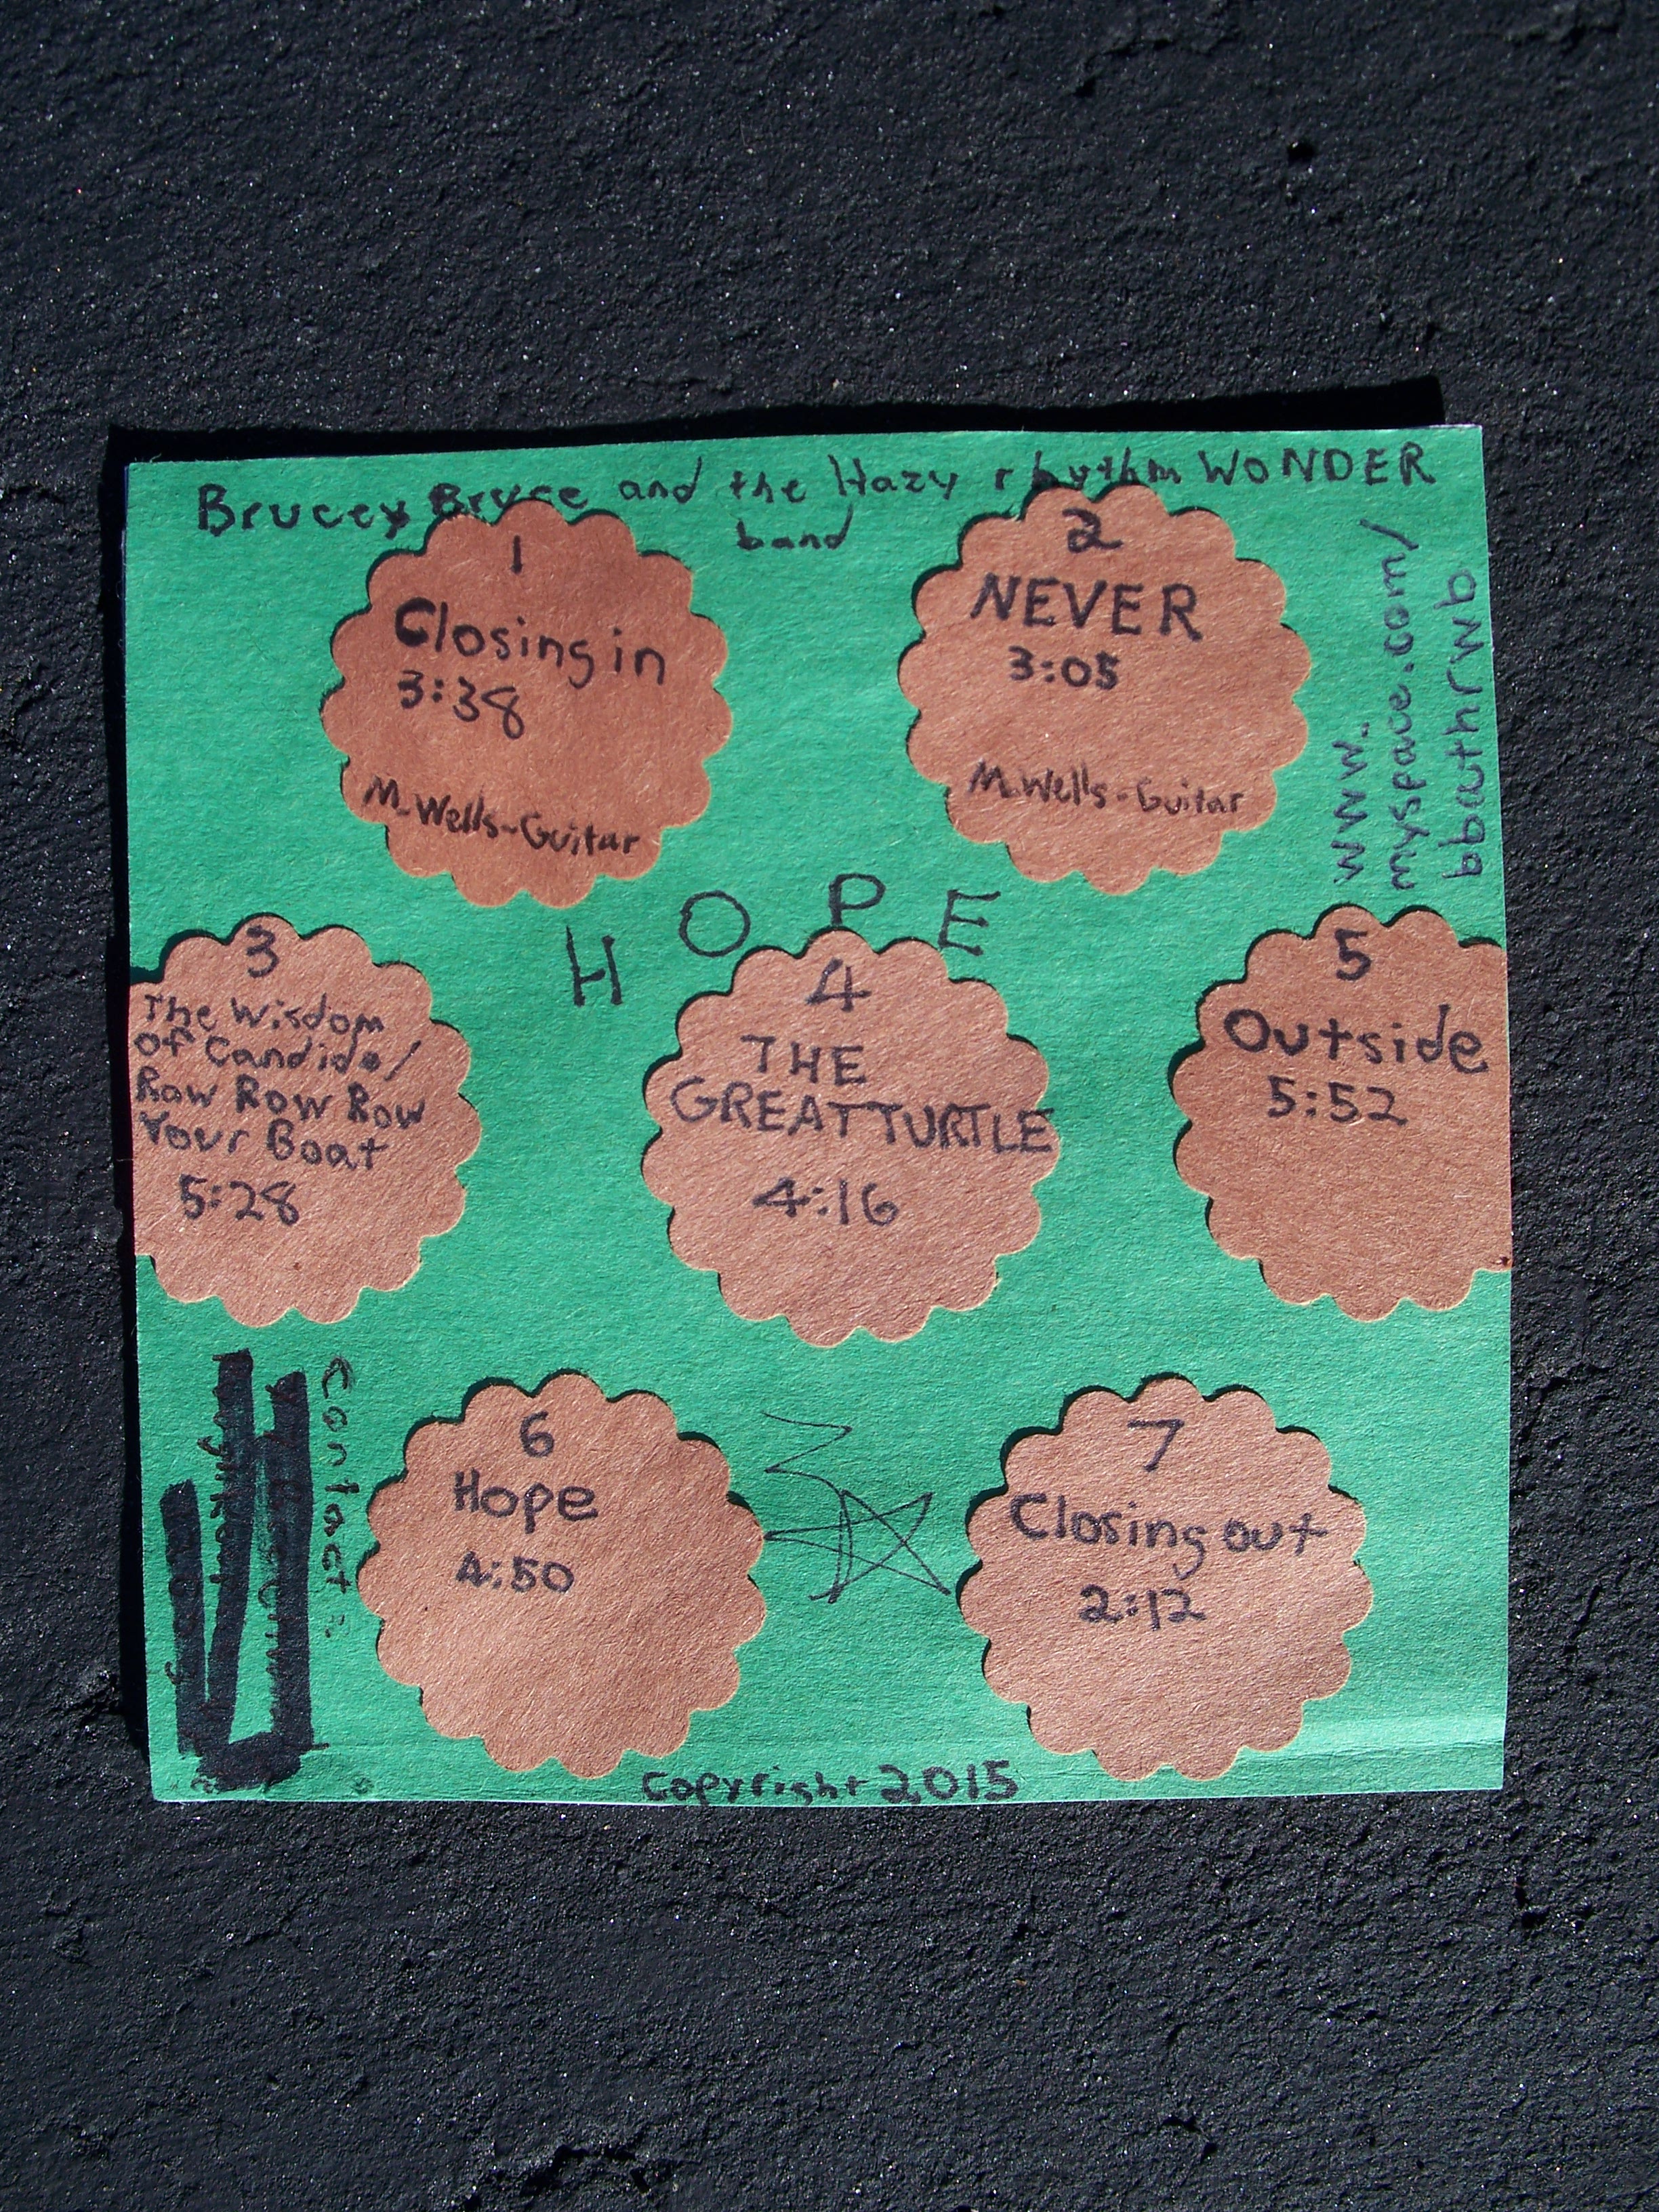 Brucey Bruce and the Hazy rhythm WONDER
band
1
Closing in
3:38
M. Wells-Guitar
2
NEVER
3:05
M. Wells-Guitar
www.
myspace.com/
bbathrwb
HOPE
3
The Wisdom
of Candide/
Row Row Row
Your Boat
5:28
4
THE
GREAT TURTLE
4:16
5
Outside
5:52
Contact:
6
Hope
4:50
7
Closing out
2:12
Copyright 2015